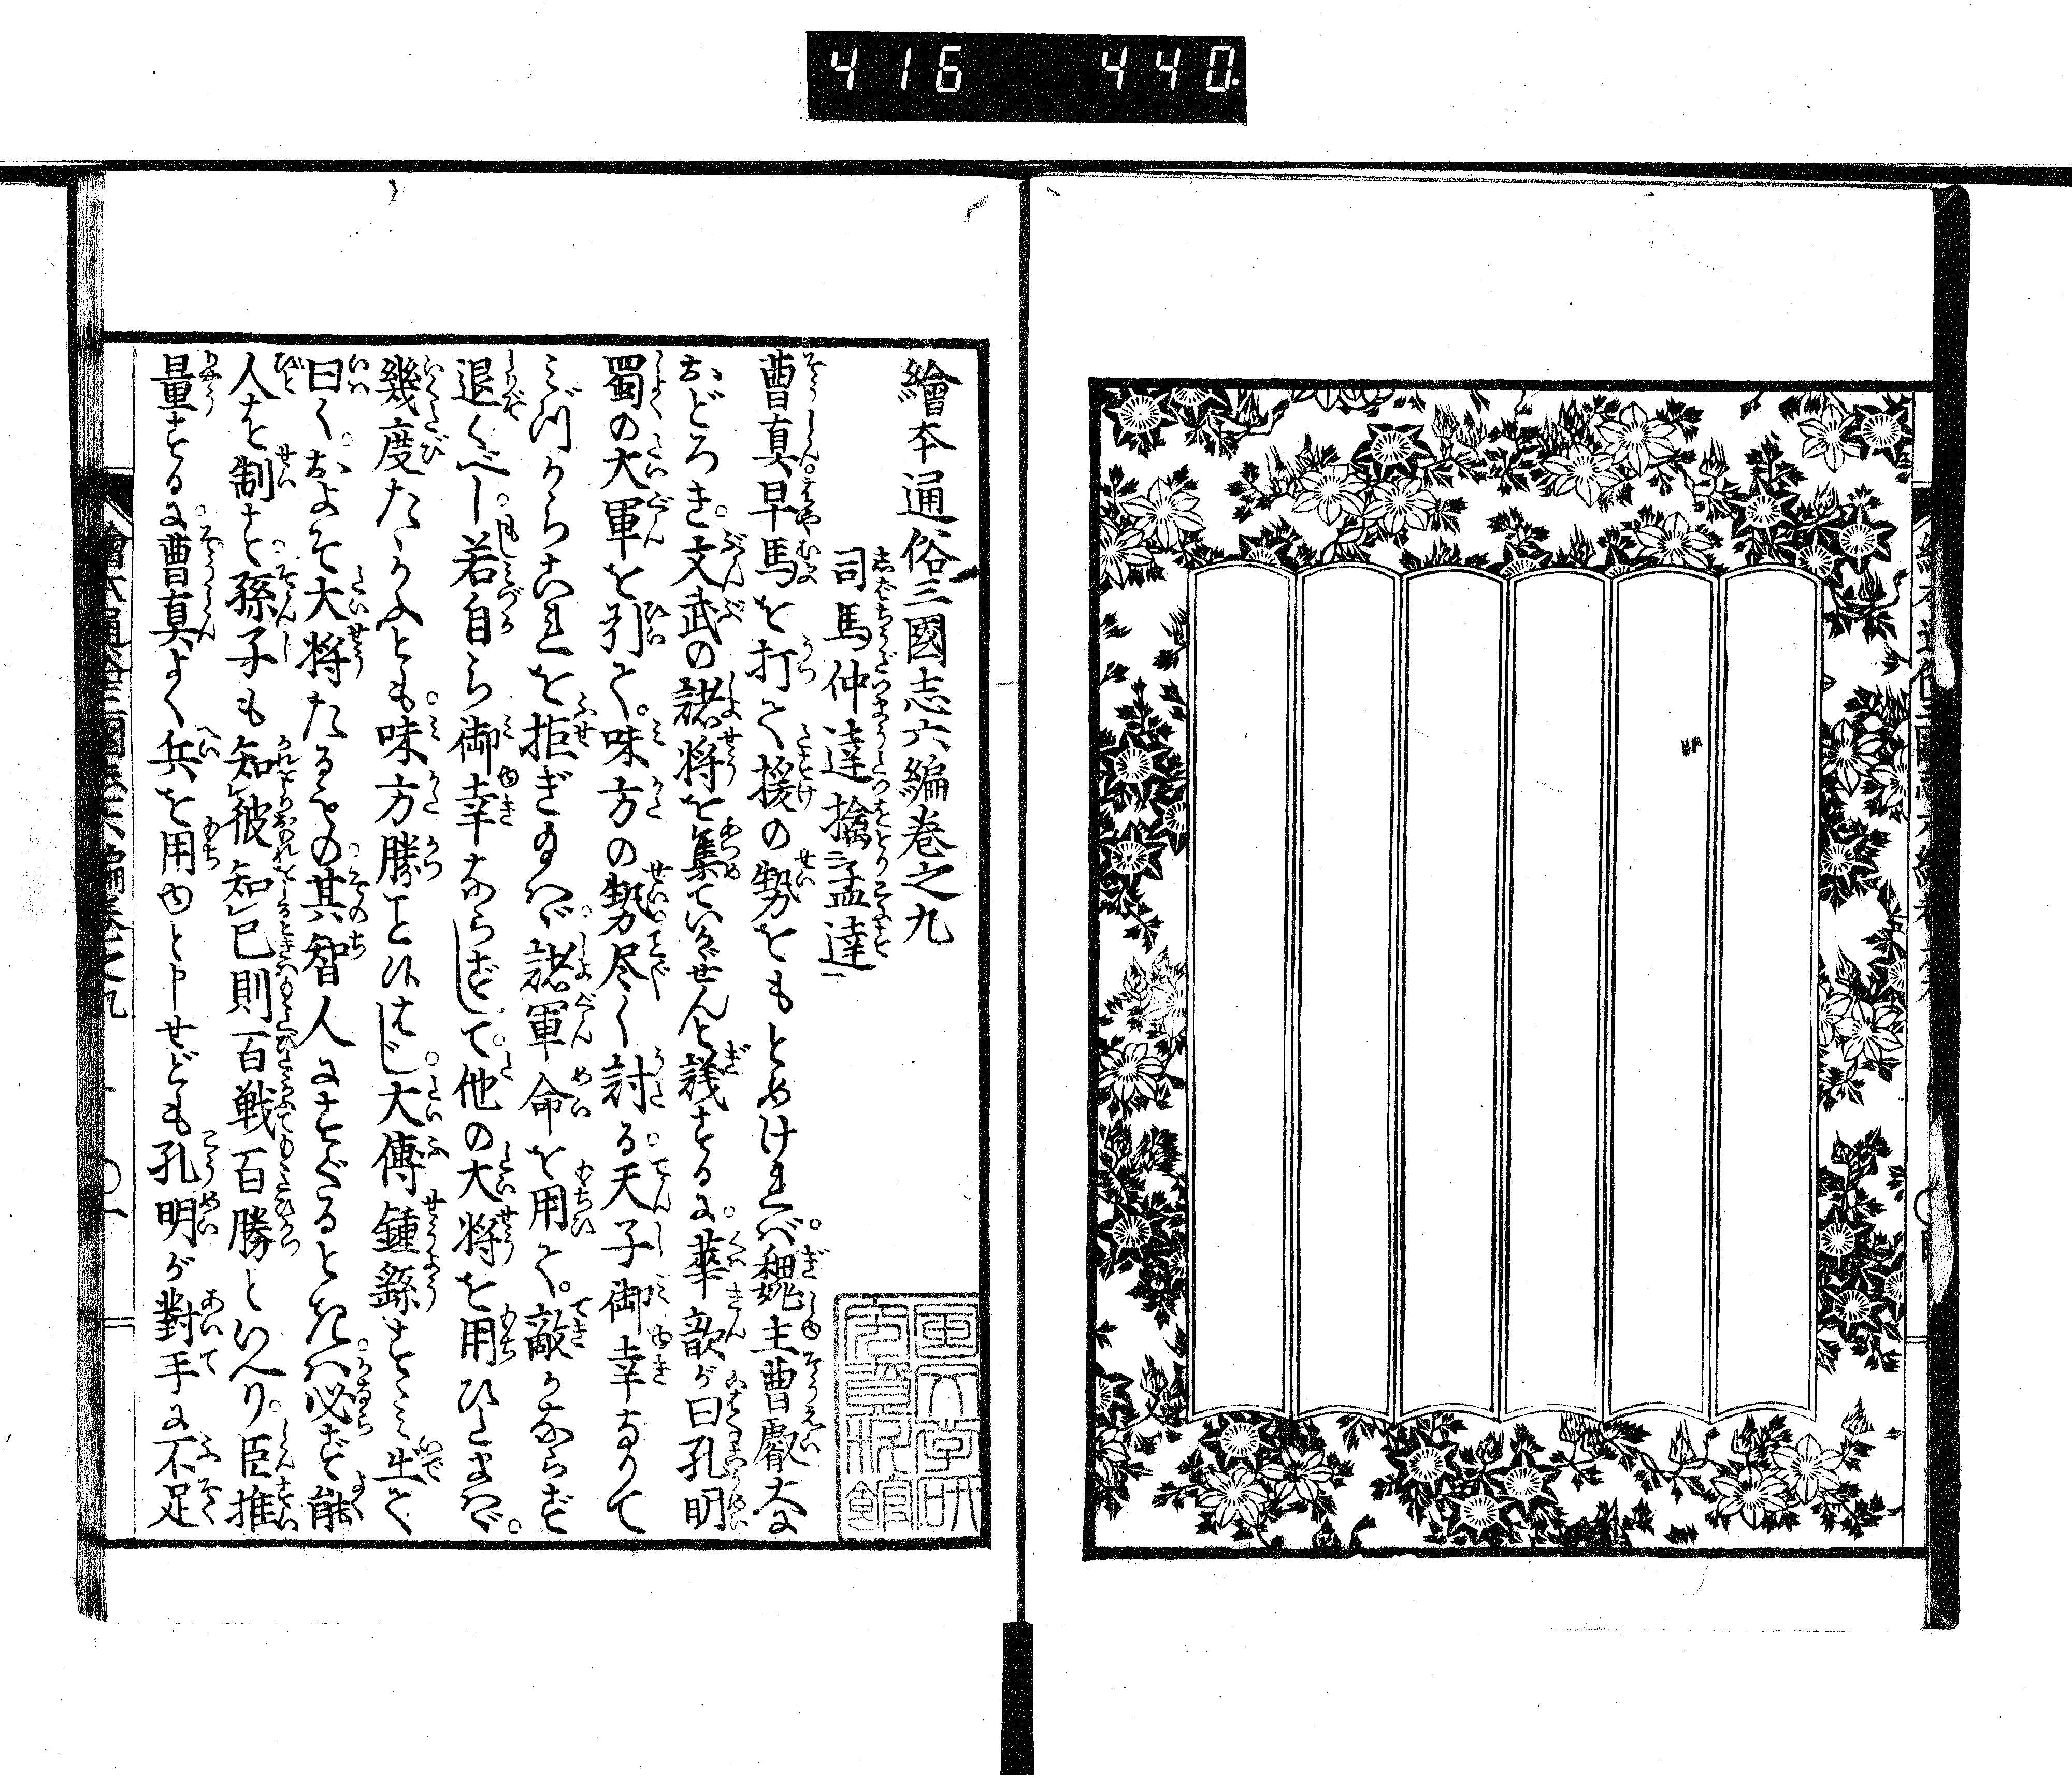 416 440
繪本通俗三國志六編卷之九
司馬仲達擒孟達
曹真早馬を打て援の勢をもとめければ魏主曹叡大に
おどろき文武の諸将を集ていかゞせんと議するに華歆が曰孔明
蜀の大軍を引て味方の勢尽く討る天子御幸なりて
みづからこれを拒ぎ給はゞ諸軍命を用て敵かならず
退くべし若自ら御幸ならずして他の大将を用ひたまはゞ
幾度たゝかふとも味方勝ことはじ大傅鍾繇すゝみ出て
曰くおよそ大将たるもの其智人にすぐるときは必ず能
人を制す孫子も知彼知己則百戦百勝といへり臣推
量するに曹真よく兵を用ゆと申せども孔明が對手に不足
繪本通俗三國志六編卷之九 〇一